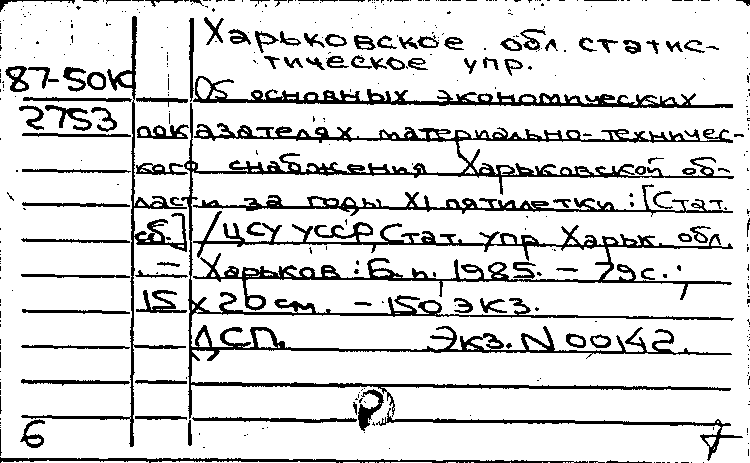 Харьковское обл. статис-
тическое упр.
87-50К
Об основных экономических
2753
показателях материально-техничес-
кого снабжения Харьковской об-
ласти за годы XI пятилетки : [Стат.
сб.] / ЦСУ УССР, Стат. упр. Харьк. обл.
. – Харьков : Б. и. 1985. – 79 с. ;
15 х 20 см. – 150 экз.
ДСП. Экз. N 00142.
6